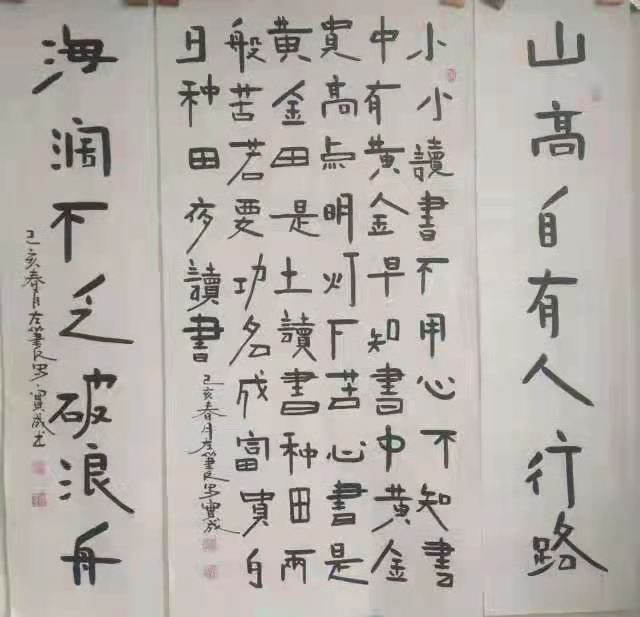 山高自有人行路
小小讀書不用心不知書
中有黄金早知書中黄金
貴高点明灯下苦心書是
黄金田是土讀書种田兩
般苦若要功名成富貴白
日种田夜讀書
己亥春月左筆 寶成
海阔不乏破浪舟
己亥春月左筆 寶成书